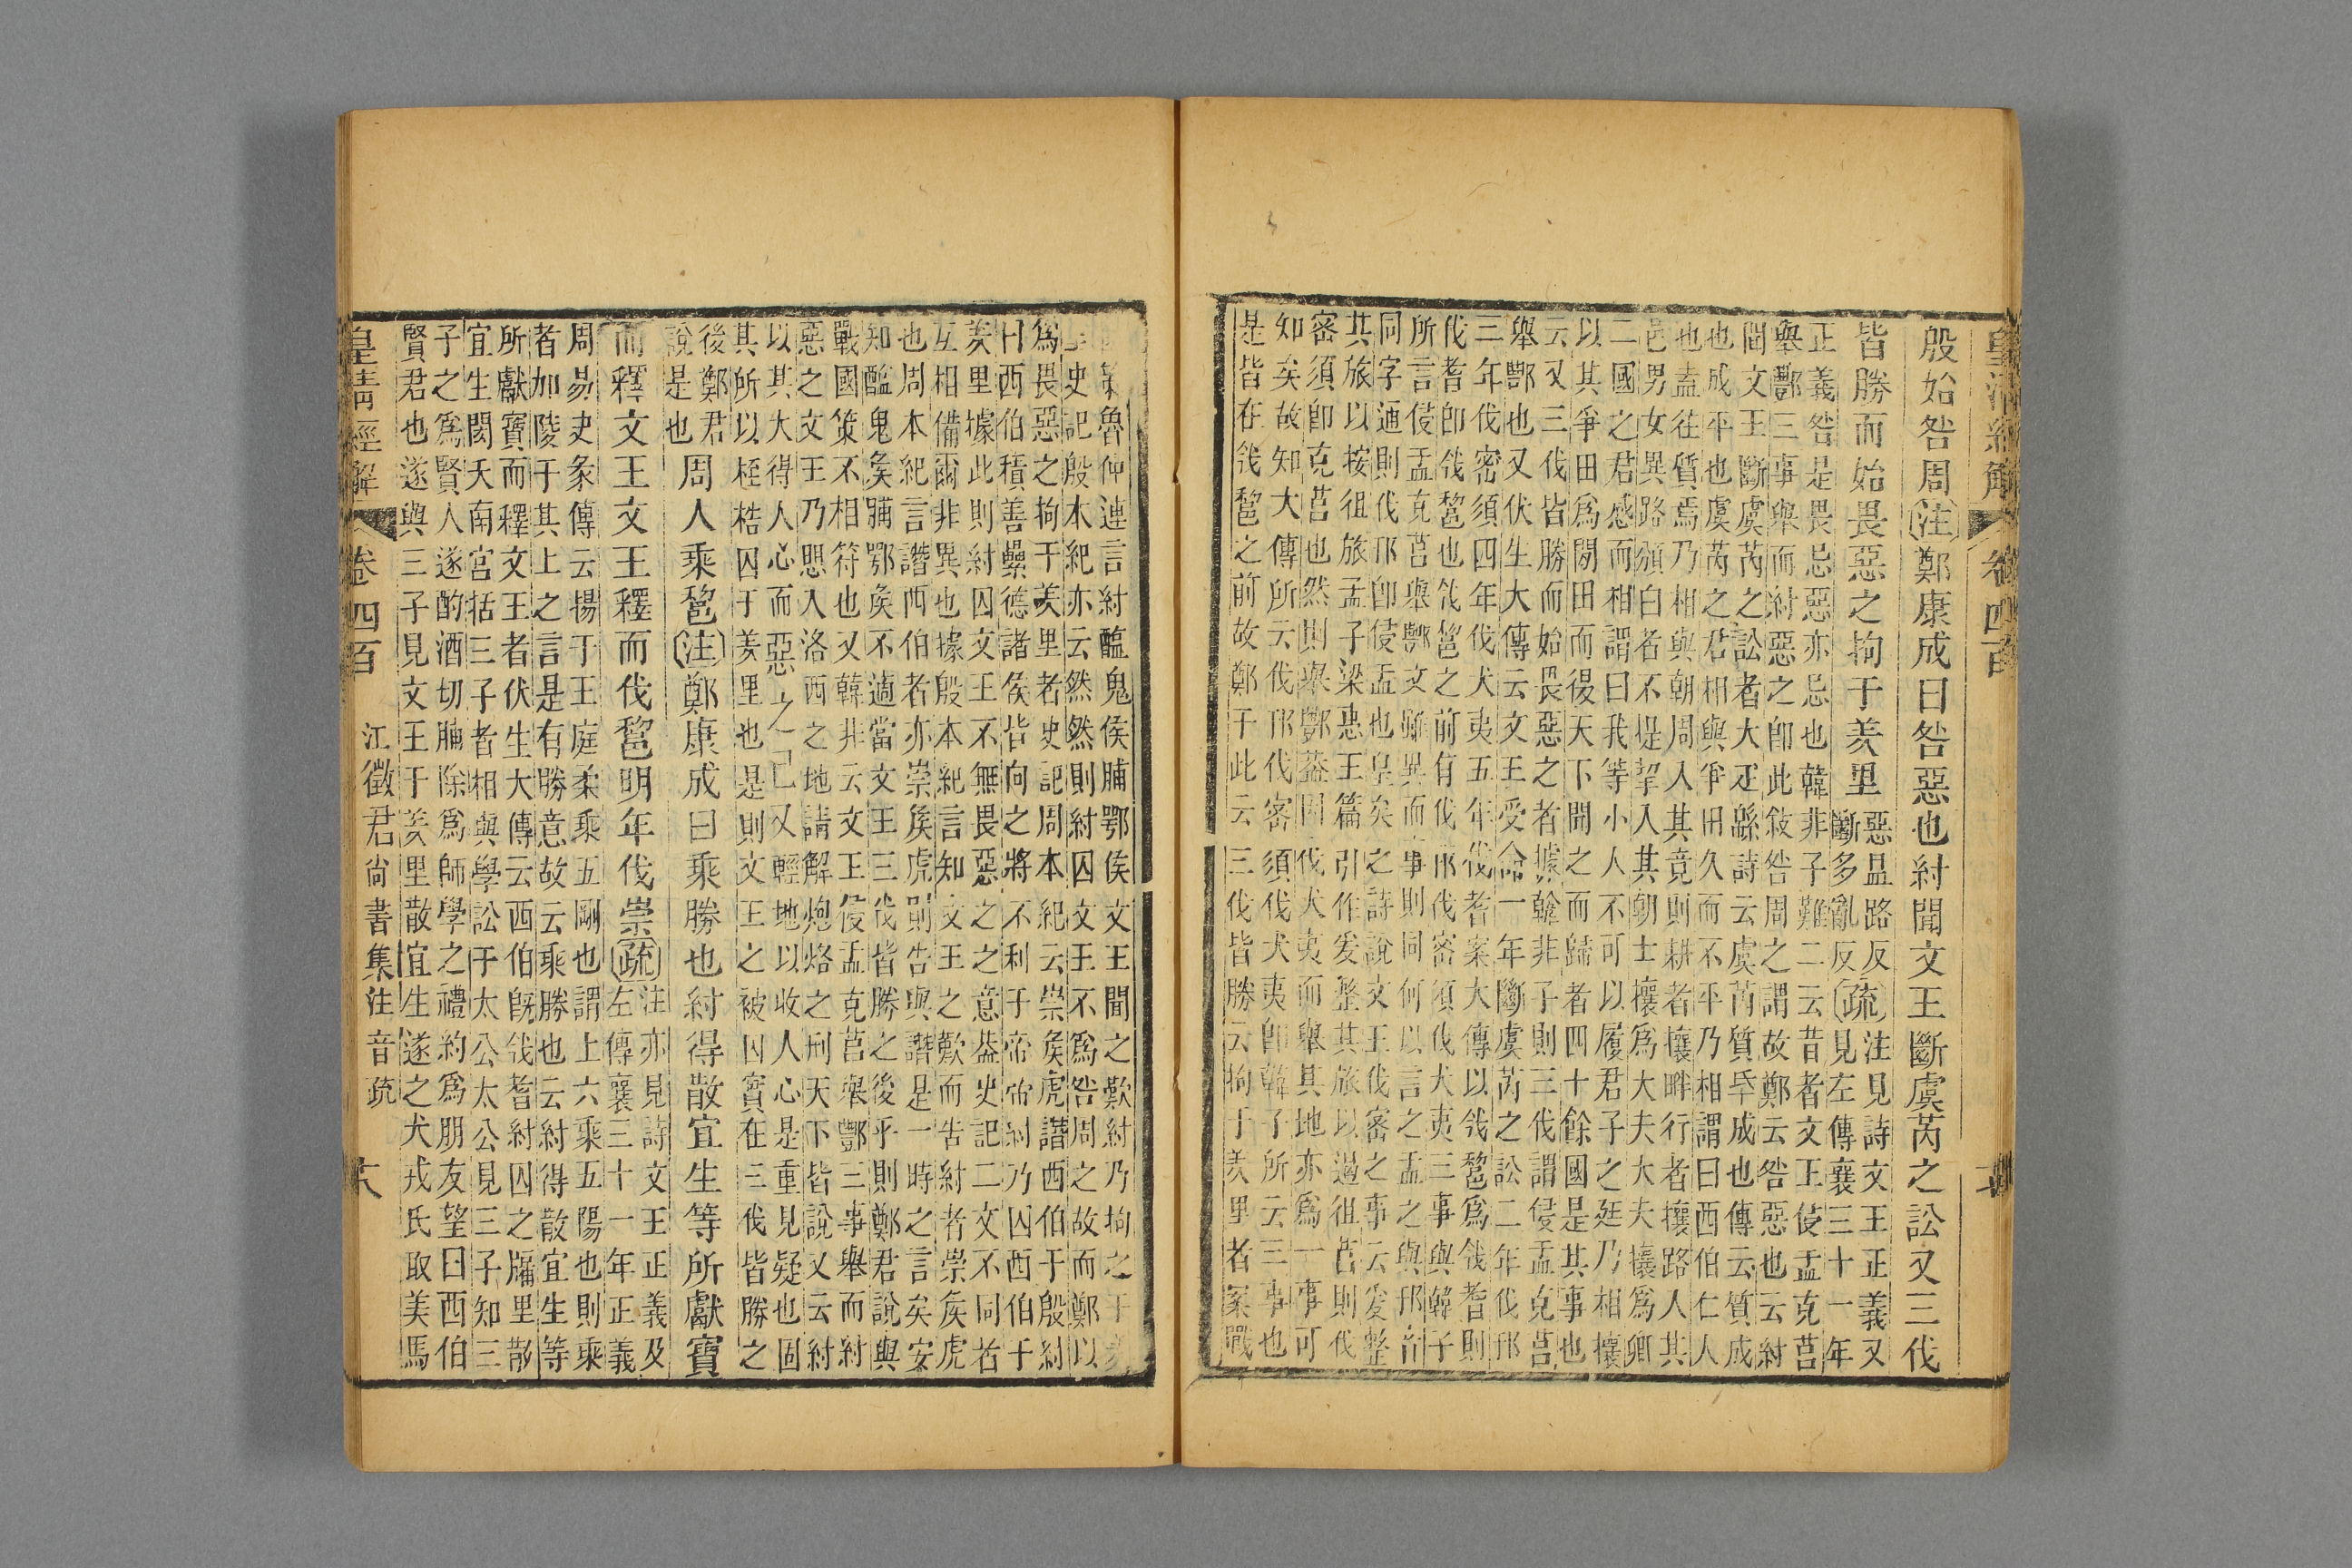 皇清經解 卷四百
殷始咎周注鄭康成曰咎惡也紂聞文王斷虞芮之訟又三伐
皆勝而始畏惡之拘于羑里惡㿽路反斷多亂反疏注見詩文王正義又見左傳襄三十一年
正義咎是畏忌惡亦忌也韓非子難二云昔者文王侵盂克莒
舉酆三事舉而紂惡之卽此敍咎周之謂故鄭云咎惡也云紂
聞文王斷虞芮之訟者大疋緜詩云虞芮質厥成也傳云質成
也成平也虞芮之君相與爭田久而不平乃相謂曰西伯仁人
也盍往質焉乃相與朝周入其竟則耕者攘畔行者攘路入其
邑男女異路頒白者不提挈入其朝士攘爲大夫大夫攘爲卿
二國之君感而相謂曰我等小人不可以履君子之廷乃相攘
以其爭田爲閒田而後天下聞之而歸者四十餘國是其事也
云又三伐皆勝而始畏惡之者據韓非子則三伐謂侵盂克莒
舉酆也又伏生大傳云文王受命一年斷虞芮之訟二年伐邘
三年伐密須四年伐犬夷五年伐耆案大傳以𢦟𨛫爲𢦟耆則
伐耆卽𢦟𨛫也𢦟𨛫之前有伐邘伐密須伐犬夷三事與韓子
所言侵盂克莒舉酆文雖異而事則同何以言之盂之與邘古
同字通則伐邘卽侵盂也皇矣之詩說文王伐密之事云爰整
其旅以按徂旅孟子梁惠王篇引作爰整其旅以遏徂莒則伐
密須卽克莒也然則舉酆葢因伐犬夷而舉其地亦爲一事可
知矣故知大傳所云伐邘伐密須伐犬夷卽韓子所云三事也
是皆在𢦟𨛫之前故鄭于此云三伐皆勝云拘于羑里者案戰
策魯仲連言紂醢鬼侯脯鄂侯文王聞之歎紂乃拘之于羑
里史記殷本紀亦云然然則紂囚文王不爲咎周之故而鄭以
爲畏惡之拘于羑里者史記周本紀云崇矦虎譖西伯于殷紂
曰西伯積善纍德諸矦皆向之將不利于帝帝紂乃囚西伯于
羑里據此則紂囚文王不無畏惡之之意葢史記二文不同者
互相備爾非異也據殷本紀言知文王之歎而告紂者崇矦虎
也周本紀言譖西伯者亦崇矦虎則告與譖是一時之言矣安
知醢鬼矦脯鄂矦不適當文王三伐皆勝之後乎則鄭君說與
戰國策不相符也又韓非云文王侵盂克莒舉酆三事舉而紂
惡之文王乃思入洛西之地請解炮烙之刑天下皆說又云紂
以其大得人心而惡之己又輕地以收人心是重見疑也固
其所以桎梏囚于羑里也是則文王之被囚實在三伐皆勝之
後鄭君說是也周人乘𨛫注鄭康成曰乘勝也紂得散宜生等所獻寶
而釋文王文王釋而伐𨛫明年伐崇疏注亦見詩文王正義及左傳襄三十一年正義
周易夬彖傳云揚于王庭柔乘五剛也謂上六乘五陽也則乘
者加陵于其上之言是有勝意故云乘勝也云紂得散宜生等
所獻寶而釋文王者伏生大傳云西伯旣𢦟耆紂囚之牖里散
宜生閎夭南宮括三子者相與學訟于太公太公見三子知三
子之爲賢人遂酌酒切脯除爲師學之禮約爲朋友望曰西伯
賢君也遂與三子見文王于羑里散宜生遂之犬戎氏取美馬
皇清經解 卷四百 江徵君尙書集注音疏 大